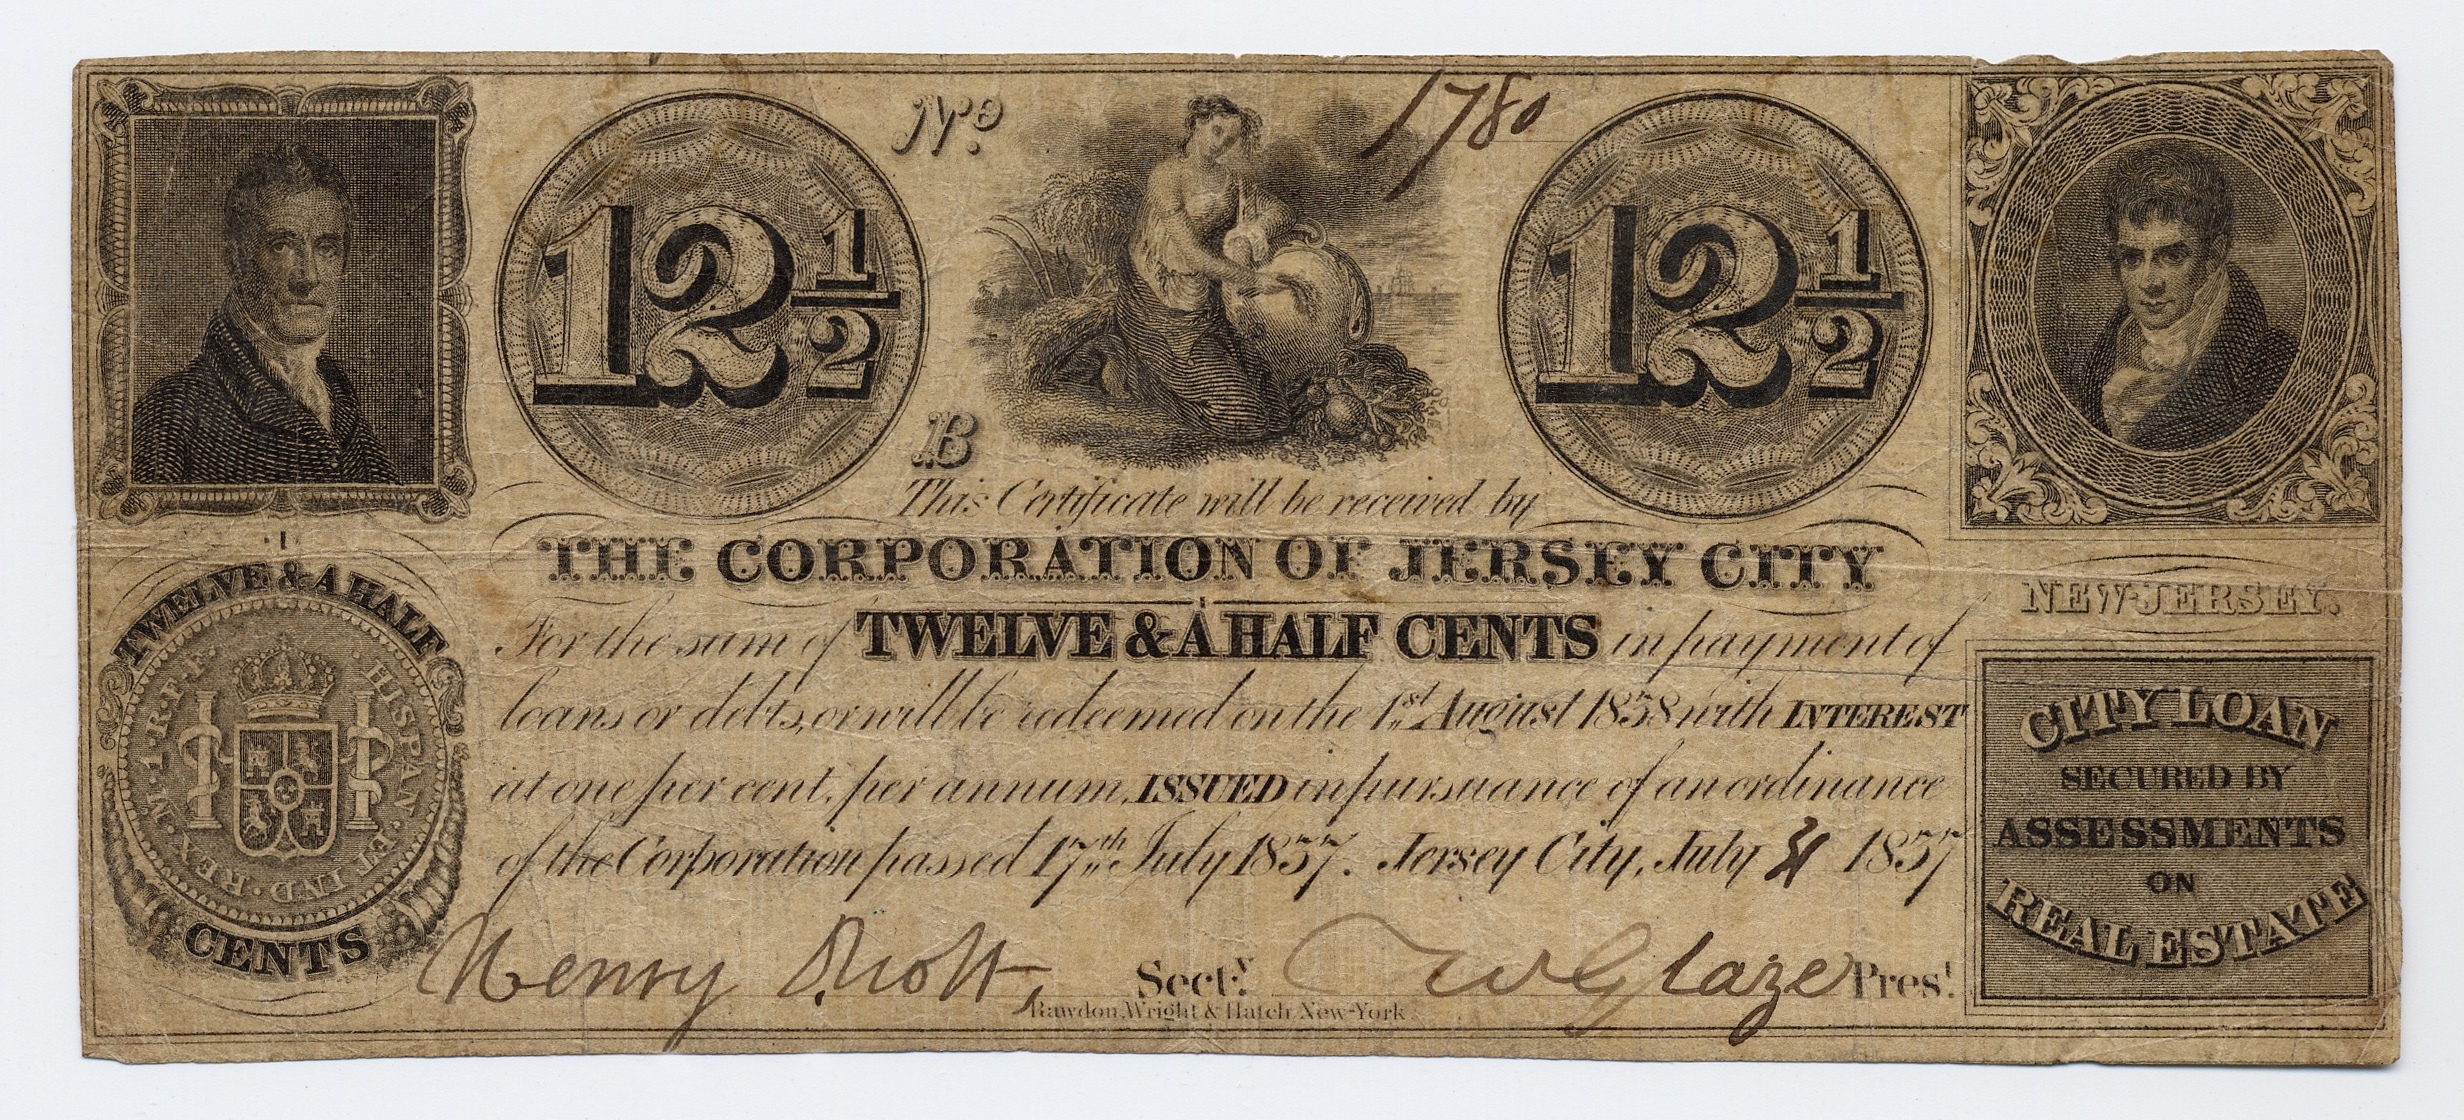 Nº. 1780
12 1/2
12 1/2
B
This Certificate will be received by
THE CORPORATION OF JERSEY CITY
NEW-JERSEY.
For the sum of TWELVE & A HALF CENTS in payment of
loans or debts, or will be redeemed on the 1st August 1838 with INTEREST
at one per cent, per annum, ISSUED in pursuance of an ordinance
of the Corporation passed 17th July 1837. Jersey City, July 1837
Henry D. Holt, Secty. T W Glaze Prest.
Rawdon, Wright & Hatch, New-York
TWELVE & A HALF
· HISPAN · ET IND · REX · M · 1 · R · F · F ·
CENTS
CITY LOAN
SECURED BY
ASSESSMENTS
ON
REAL ESTATE